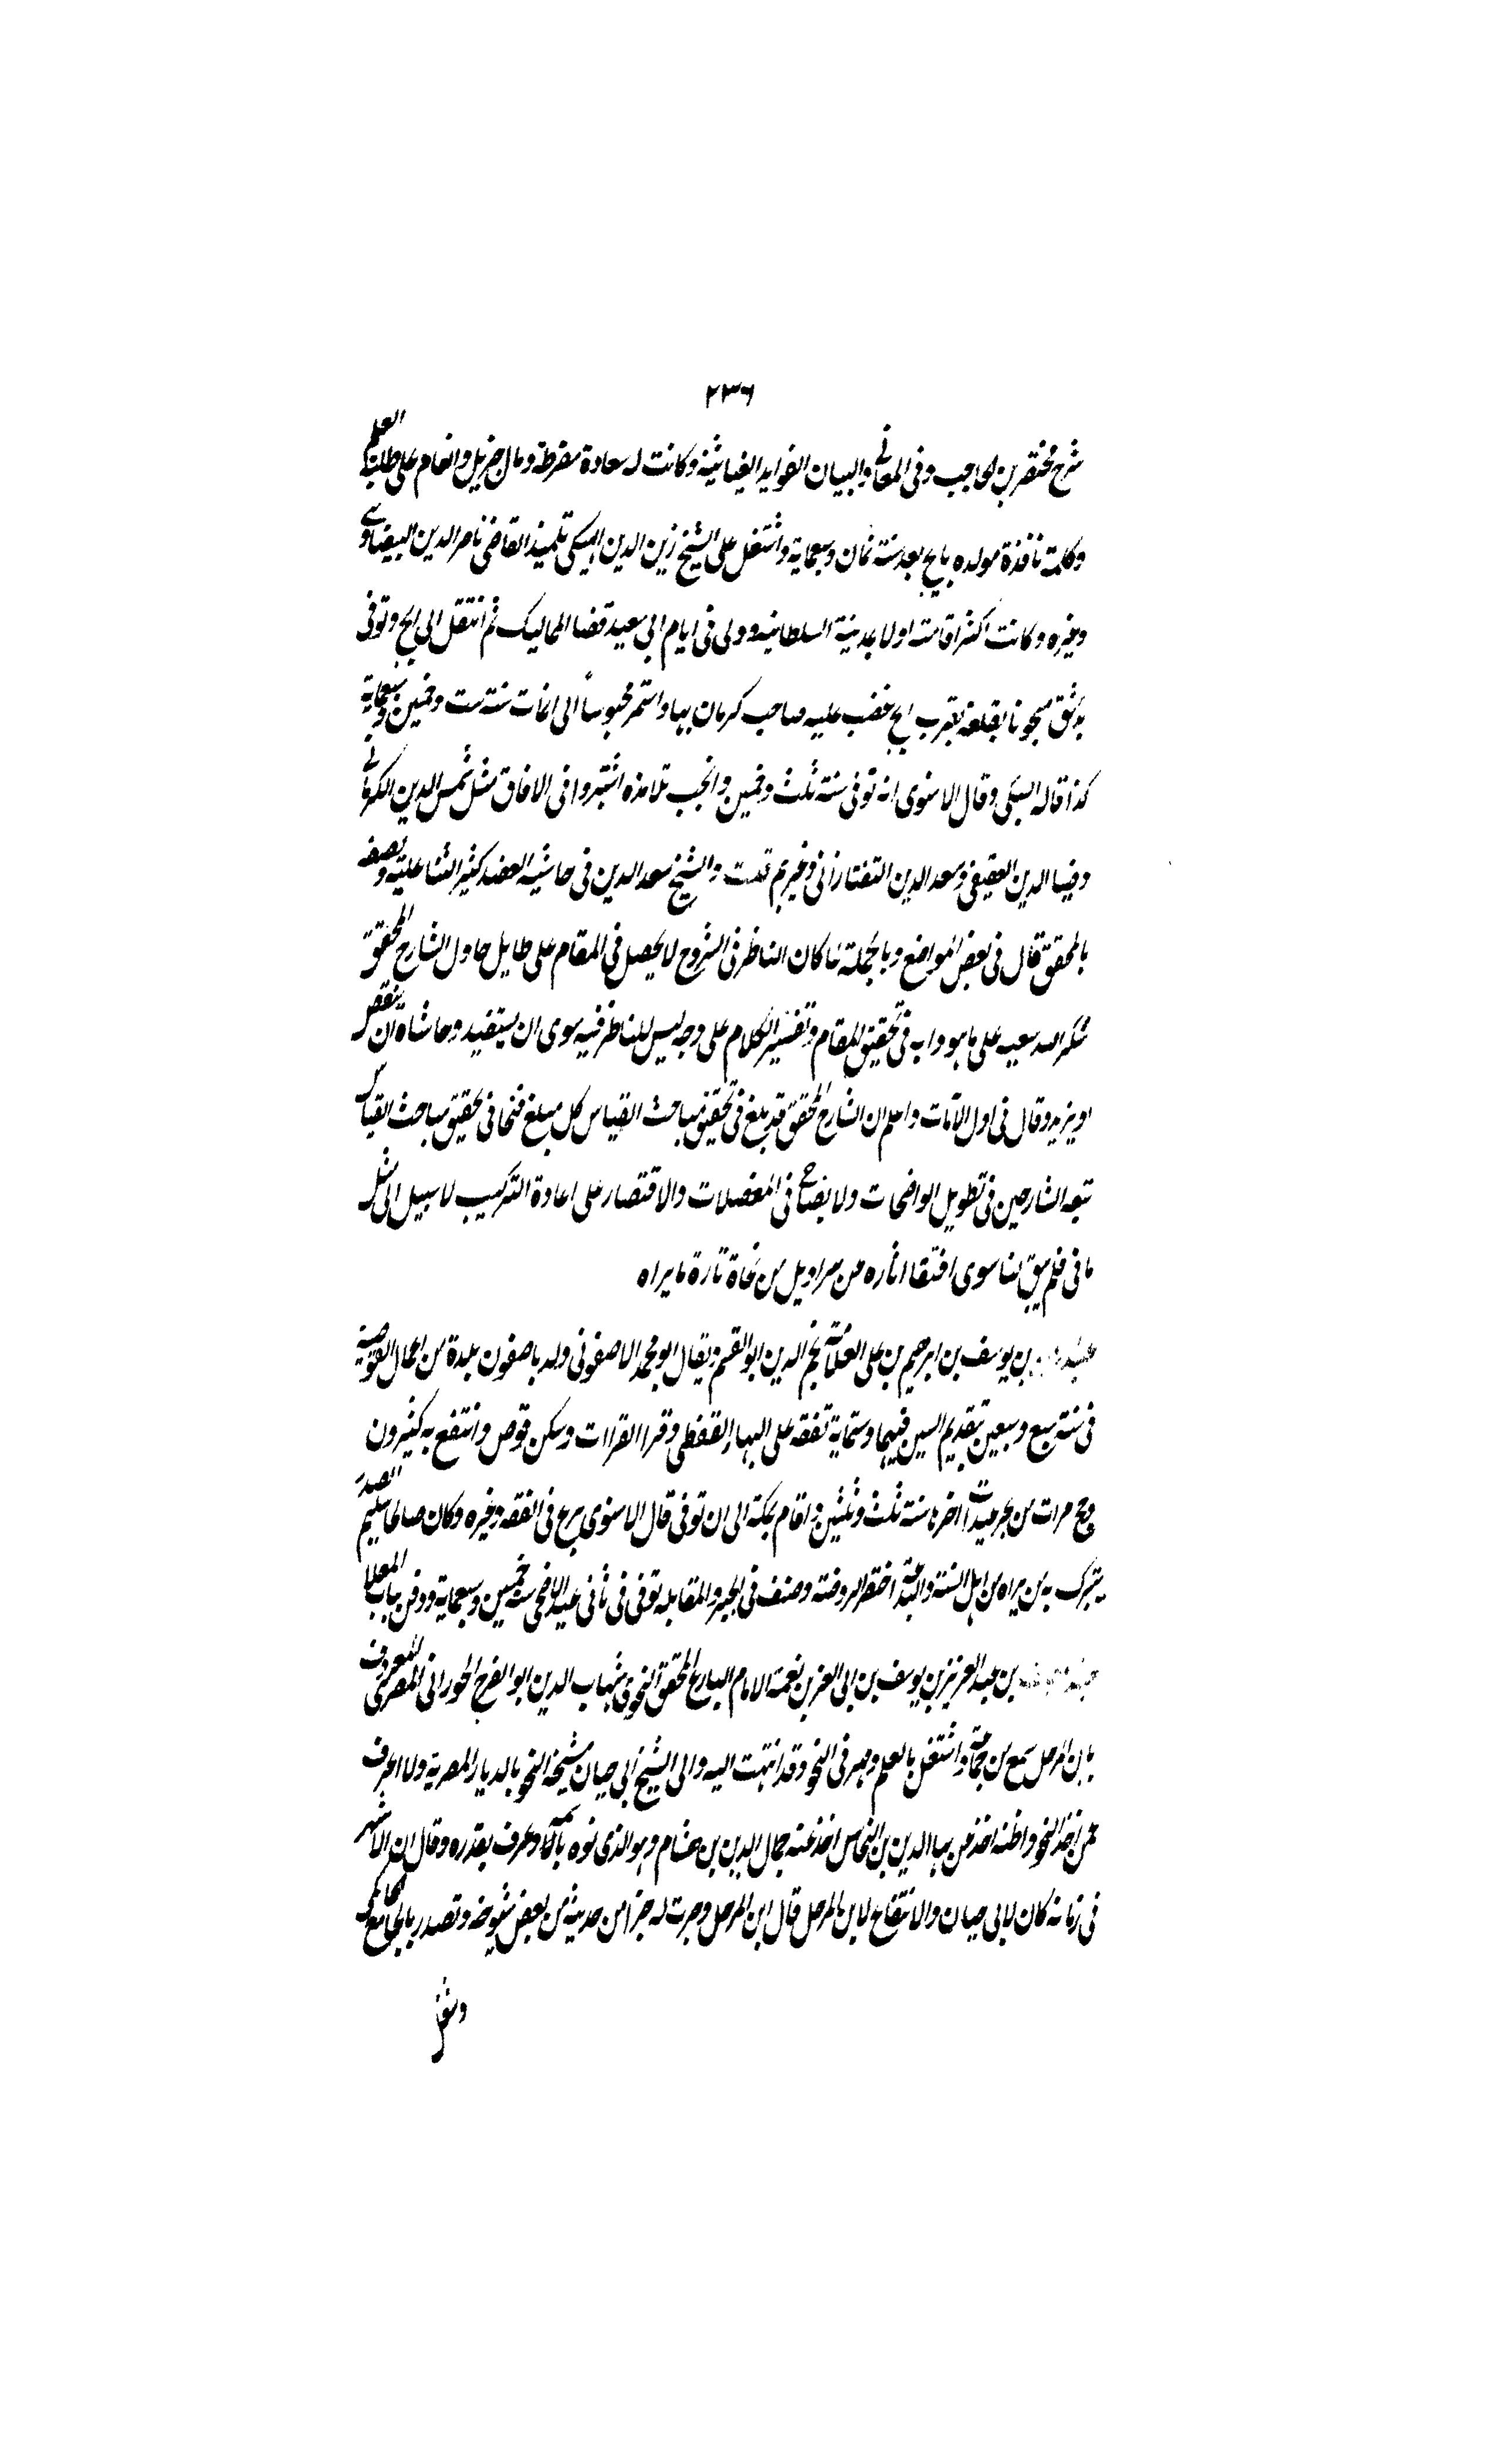 ٢٣٦
شرح مختصر بن الحاجب وفي المعاني والبيان الفوايد الغياثية وكانت له سعادة مفرطة ومال جزيل وانعام على طلبة العلم
وكلمة نافذة مولده بايج بعد سنة ثمان وسبعماية واشتغل على الشيخ زين الدين الهنكي تلميذ القاضي ناصر الدين البيضاوي
وغيره وكانت اكثر اقامته اولا بمدينة السلطانية وولى في ايام ابي سعيد قضا الممالك ثم انتقل الى ايج وتوفي
مسجونا بقلعة بقرب ايج غضب عليه صاحب كرمان بها واستمر محبوسا الى ان مات سنة ست وخمسين وسبعماية
كذا قاله السبكي وقال الاسنوي انه توفي سنة ثلث وخمسين وانجب تلامذه اشتهروا في الافاق مثل شمس الدين الكرماني
وضيا الدين العفيفي وسعد الدين التفتازاني وغيرهم قلت والشيخ سعد الدين في حاشية العضد كثير الثنا عليه وتصفه
بالمحقق قال في بعض المواضع وبالجملة لما كان الناظر في الشروح لا يحصل في المقام على طايل حاول الشارح المحقق
شكر الله سعيه على ما هو دابه في تحقيق المقام وتفسير الكلام على وجه ليس للناظر فيه سوى ان يستفيد وحاشاه ان ينقص
او يزيد وقال في اول واعلم ان الشارح المحقق قد بلغ في تحقيق مباحث القياس كل مبلغ في تحقيق مباحث القياس
تبعه الشارحين في تطويل الواضحات ولا يضاح في المعضلات والاقتصار على اعادة التركيب لا سبيل الى مثل
ما في فلم يبق لنا سوى اقتفا اثاره من تارة ما يراه
بن يوسف بن ابرهيم بن علي العلامة نجم الدين ابو القسم ويقال ابو محمد الاصفوني ولد باصفون بلدة من اعمال القوصية
في سنة سبع وسبعين بتقديم السين فيهما وستماية تفقه على البهاء القفطي وقرا القراات وسكن قوص وانتفع به كثيرون
وحج مرات من بحر عيذاب اخرها سنة ثلث وثلثين واقام بمكة الى ان توفي قال الاسنوي برع في الفقه وغيره وكان صالحا سليم الصدر
يتبرك به من يراه من اهل السنة والبدعة اختصر الروضة وصنف في الجبر والمقابله توفي في ثاني عيد الاضحى سنة خمسين وسبعماية ودفن بباب المعلا
بن عبد العزيز بن يوسف بن ابي العز بن نعمة الامام البارع المحقق النحوي شهاب الدين ابو الفرج الحوراني المصري المعروف
بابن المرحل سمع من جماعة واشتغل بالعلم ومهر في النحو وقد انتهت اليه والى الشيخ ابي حيان مشيخة النحو بالديار المصرية ولا اعرف
عمن اخذ النحو واظنه اخذ عن بها الدين بن النحاس اخذ عنه جمال الدين بن هشام وهو الذي نوه باسمه وعرف بقدره وقال ان الاشتهار
في زمانه كان لابي حيان والانتفاع لابن المرحل قال ابن المرحل وخرجت له جزا من حديثه من بعض شيوخه وتصدر بالجامع الحاكمي
وشغل